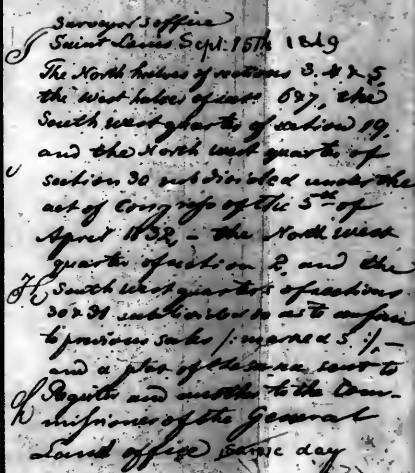 Surveyor's office
Saint Louis, Sept. 15th 1849
The North halves of sections 3. 4 & 5
the West halves of secs 6 & 7, the
South West quarter of section 19
and the North West quarter of
section 30 subdivided under the
act of Congress of the 5th of
April 1832, – the North West
quarter of section 2, and the
South West quarters of sections
30 & 31 subdivided so as to conform
to previous sales /: marked S :/ –
and a plat of the same sent to
Register and another to the Com-
missioner of the General
Land office same day